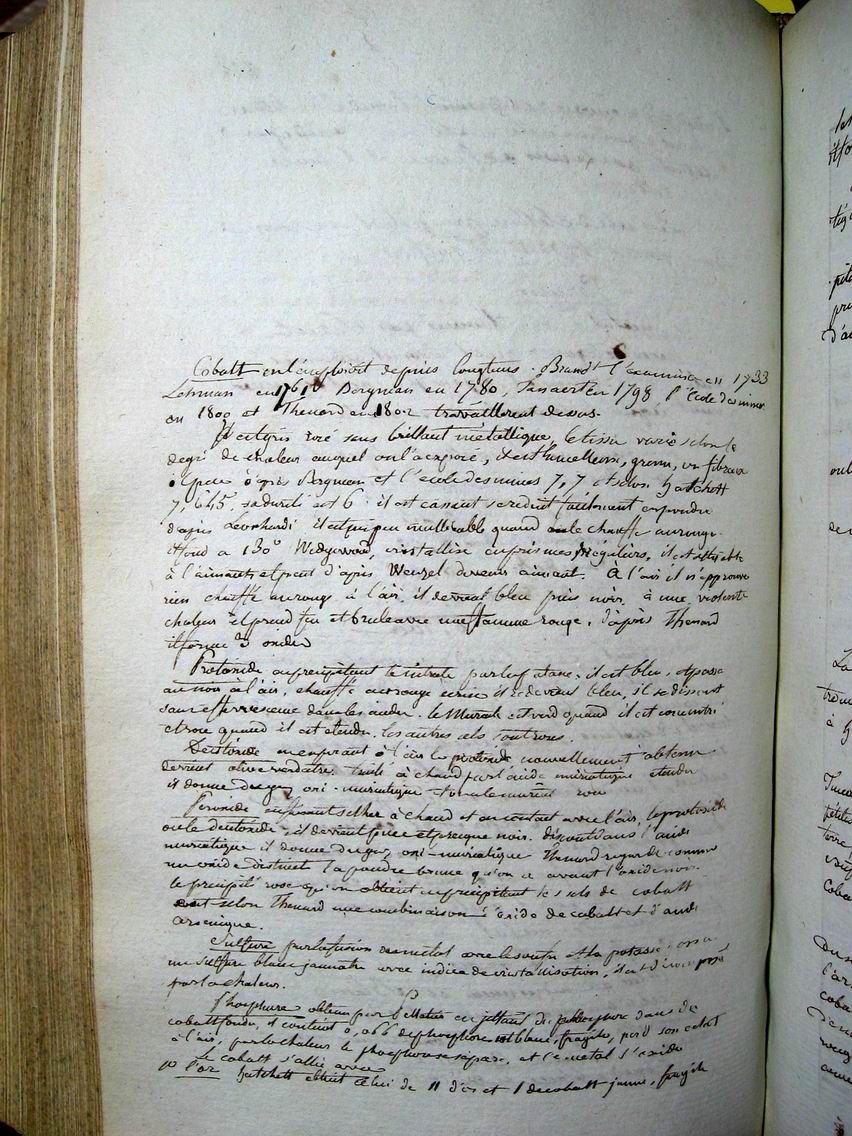 Cobalt on l'employoit depuis longtems. Brandt l'examina en 1733
Lehman en 1761 Bergman en 1780, Tassaert en 1798, l'école des mines
en 1800 et Thenard en 1802 travaillerent dessus.
Il est gris rosé sans brillant métallique, le tissu varie selon le
degré de chaleur auquel on l'a exposé, il est lamelleux, grenu, ou fibreux
il pese d'après Bergman et l'école des mines 7,7 et selon Hatchett
7,645. sa dureté est 6. il est cassant se reduit facilement en poudre
d'après Leonhardi il est un peu malléable quand on le chauffe au rouge.
il fond a 130° Wedgwood, cristallise en prismes irréguliers, il est attirable
à l'aimant et peut d'après Wenzel devenir aimant. À l'air il n'éprouve
rien chauffé au rouge à l'air. il devient bleu puis noir. à une violente
chaleur il prend feu et brule avec une flamme rouge. d'après Thenard
il forme 3 oxides
Protoxide en précipitant le nitrate par la potasse. il est bleu, et passe
au noir à l'air, chauffé au rouge cerise il redevient bleu, il se dissout
sans effervescence dans les acides. le Muriate est verd quand il est concentré
et rose quand il est etendu. les autres sels sont roses.
Deutoxide en exposant à l'air le protoxide nouvellement obtenu
devient olive verdatre. traité à chaud par l'acide muriatique etendu
il donne du gaz oxi-muriatique et un muriate rose
Peroxide en faisant secher à chaud et au contact avec l'air, le protoxide
ou le deutoxide, il devient puce et presque noir. dissout dans l'acide
muriatique il donne du gaz oxi-muriatique Thenard regarde comme
un oxide distinct la poudre brune qu'on a avant l'oxide noir.
le précipité rose qu'on obtient en précipitant les sels de cobalt
est selon Thenard une combinaison d'oxide de cobalt et d'acide
arsenique.
Sulfure par la fusion ce métal avec le soufre et la potasse on a
un sulfure blanc jaunatre avec indice de cristallisation, il est décomposé
par la chaleur.
Phosphure obtenu par Pelletier en jettant du phosphore dans du
cobalt fondu, il contient 0,066 de phosphore est blanc, fragile, perd son eclat
à l'air, par la chaleur le phosphore se sépare, et le métal s'oxide
Le cobalt s'allie avec
1° l'or Hatchett obtint celui de 11 d'or et 1 de cobalt jaune, fragile